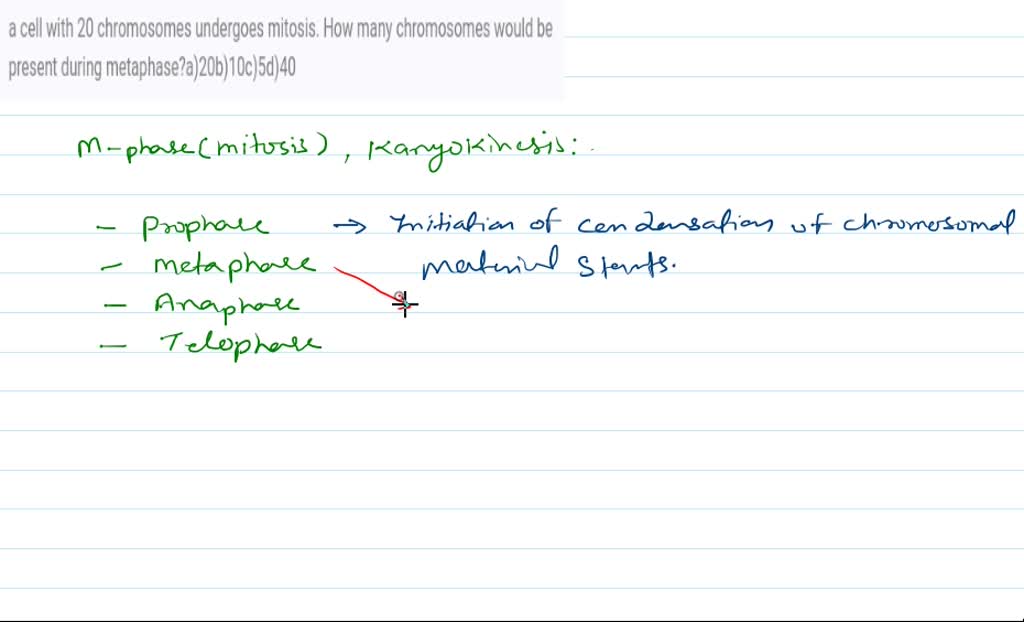 a cell with 20 chromosomes undergoes mitosis. How many chromosomes would be
present during metaphase?a)20b)10c)5d)40
M-phase (mitosis), Karyokinesis:
- Prophase → Initiation of condensation of chromosomal
material starts.
- Metaphase
- Anaphase
- Telophase